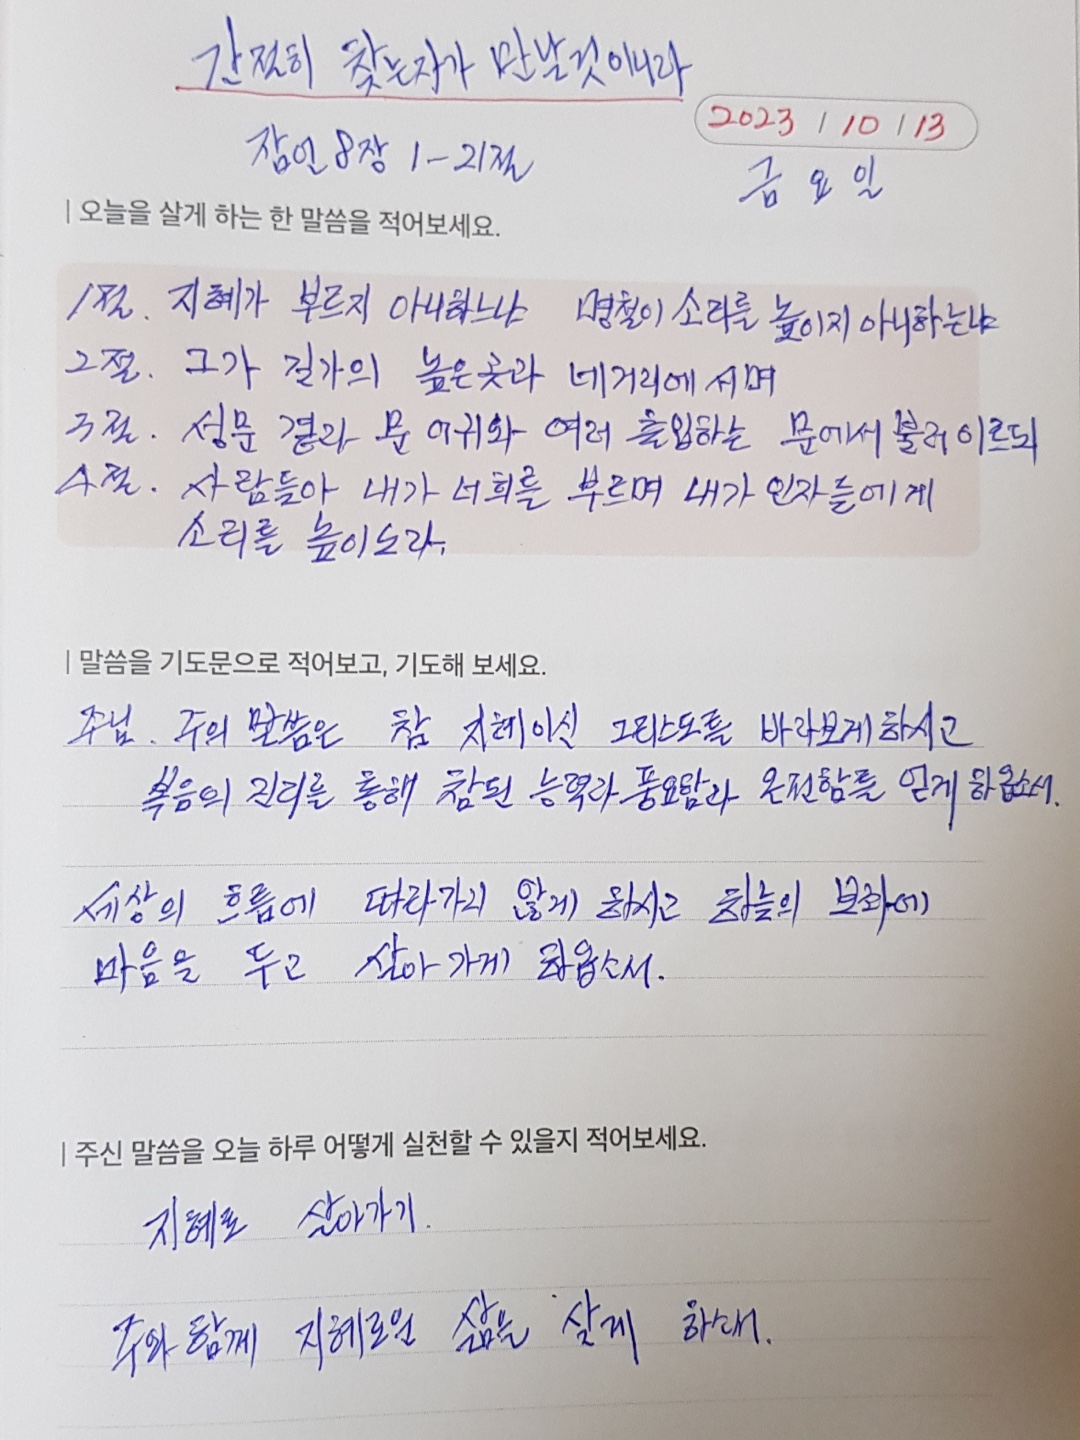 간절히 찾는자가 만날것이니라
2023 / 10 / 13
잠언 8장 1-21절
금요일
| 오늘을 살게 하는 한 말씀을 적어보세요.
1절. 지혜가 부르지 아니하느냐 명철이 소리를 높이지 아니하는냐
2절. 그가 길가의 높은곳과 네거리에 서며
3절. 성문 곁과 문 어귀와 여러 출입하는 문에서 불러 이르되
4절. 사람들아 내가 너희를 부르며 내가 인자들에게
소리를 높이노라.
| 말씀을 기도문으로 적어보고, 기도해 보세요.
주님. 주의 말씀은 참 지혜이신 그리스도를 바라보게 하시고
복음의 진리를 통해 참된 능력과 풍요함과 온전함를 얻게 하옵소서.
세상의 흐름에 따라가지 않게 하시고 하늘의 보화에
마음을 두고 살아가게 하옵소서.
| 주신 말씀을 오늘 하루 어떻게 실천할 수 있을지 적어보세요.
지혜로 살아가기.
주와 함께 지혜로운 삶을 살게 하소서.